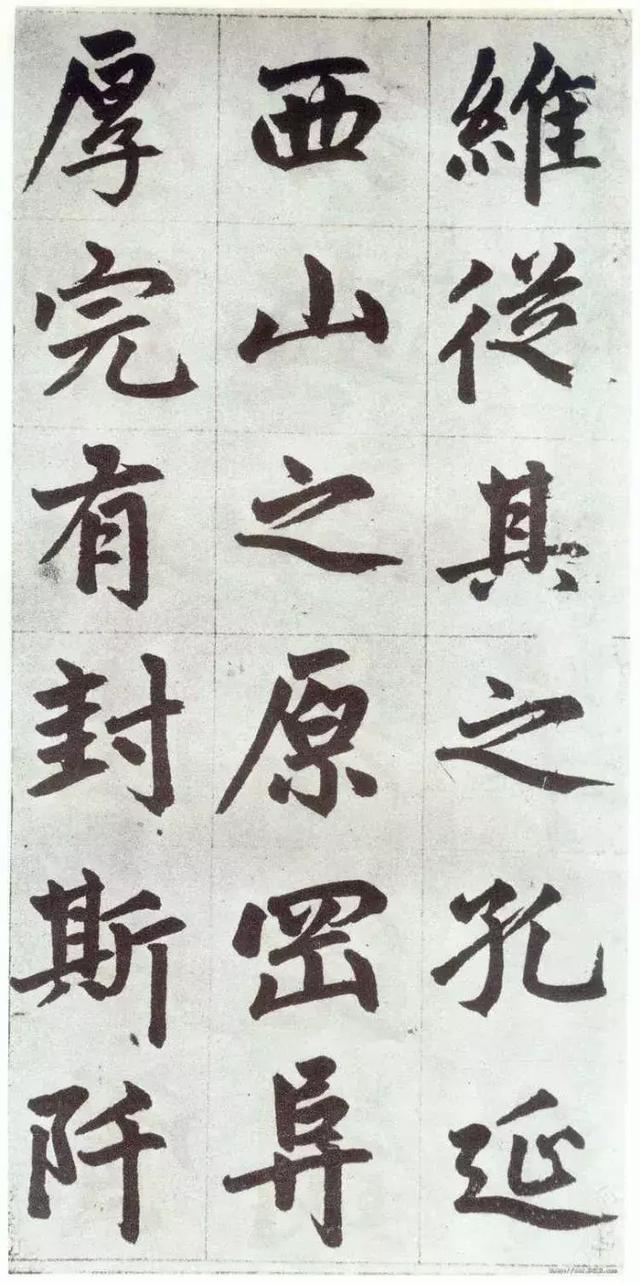 維從其之孔延
西山之原罡阜
厚完有封斯阡